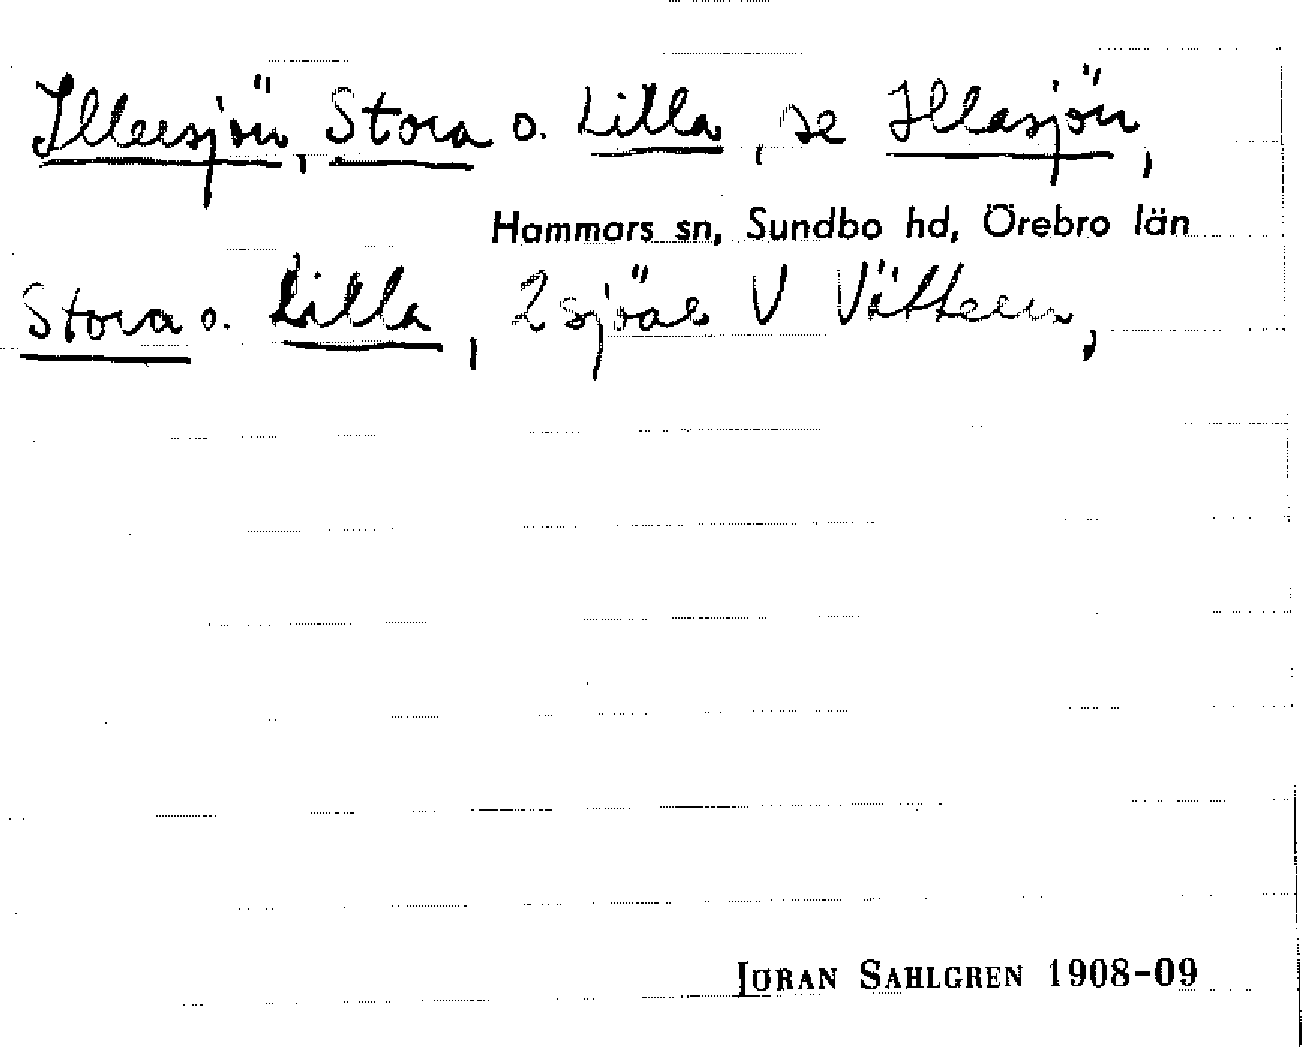 Illersjön, Stora o. Lilla, se Illasjön,
Hammars sn, Sundbo hd, Örebro län
Stora o. Lilla, 2 sjöar V Vättern,
JÖRAN SAHLGREN 1908-09